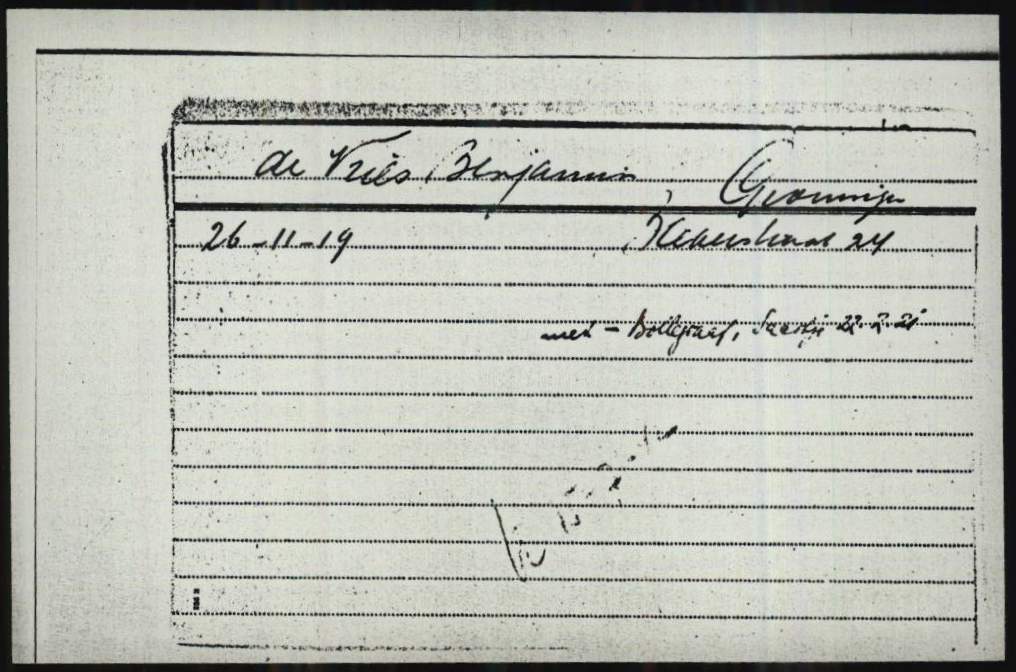 de Vries, Benjamin Groningen
26-11-19 straat 24
met - Bollegraaf, 22-2-21